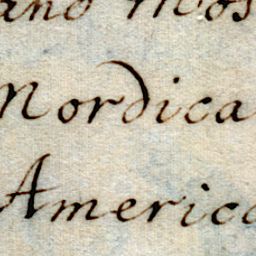 and Mos
Nordica
America